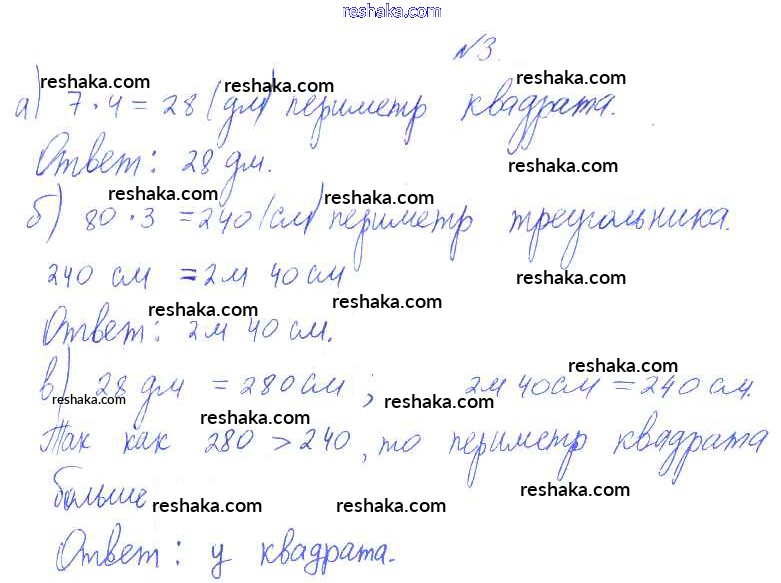 reshaka.com
№3.
reshaka.com reshaka.com reshaka.com
а) 7·4 = 28 (дм) периметр квадрата.
Ответ: 28 дм.
reshaka.com
reshaka.com reshaka.com
б) 80·3 = 240 (см) периметр треугольника.
240 см = 2м 40 см
reshaka.com
reshaka.com reshaka.com
Ответ: 2м 40 см.
reshaka.com
в) 28 дм = 280 см ; 2м 40 см = 240 см.
reshaka.com reshaka.com reshaka.com
Так как 280 > 240, то периметр квадрата
больше
reshaka.com reshaka.com reshaka.com
Ответ: у квадрата.